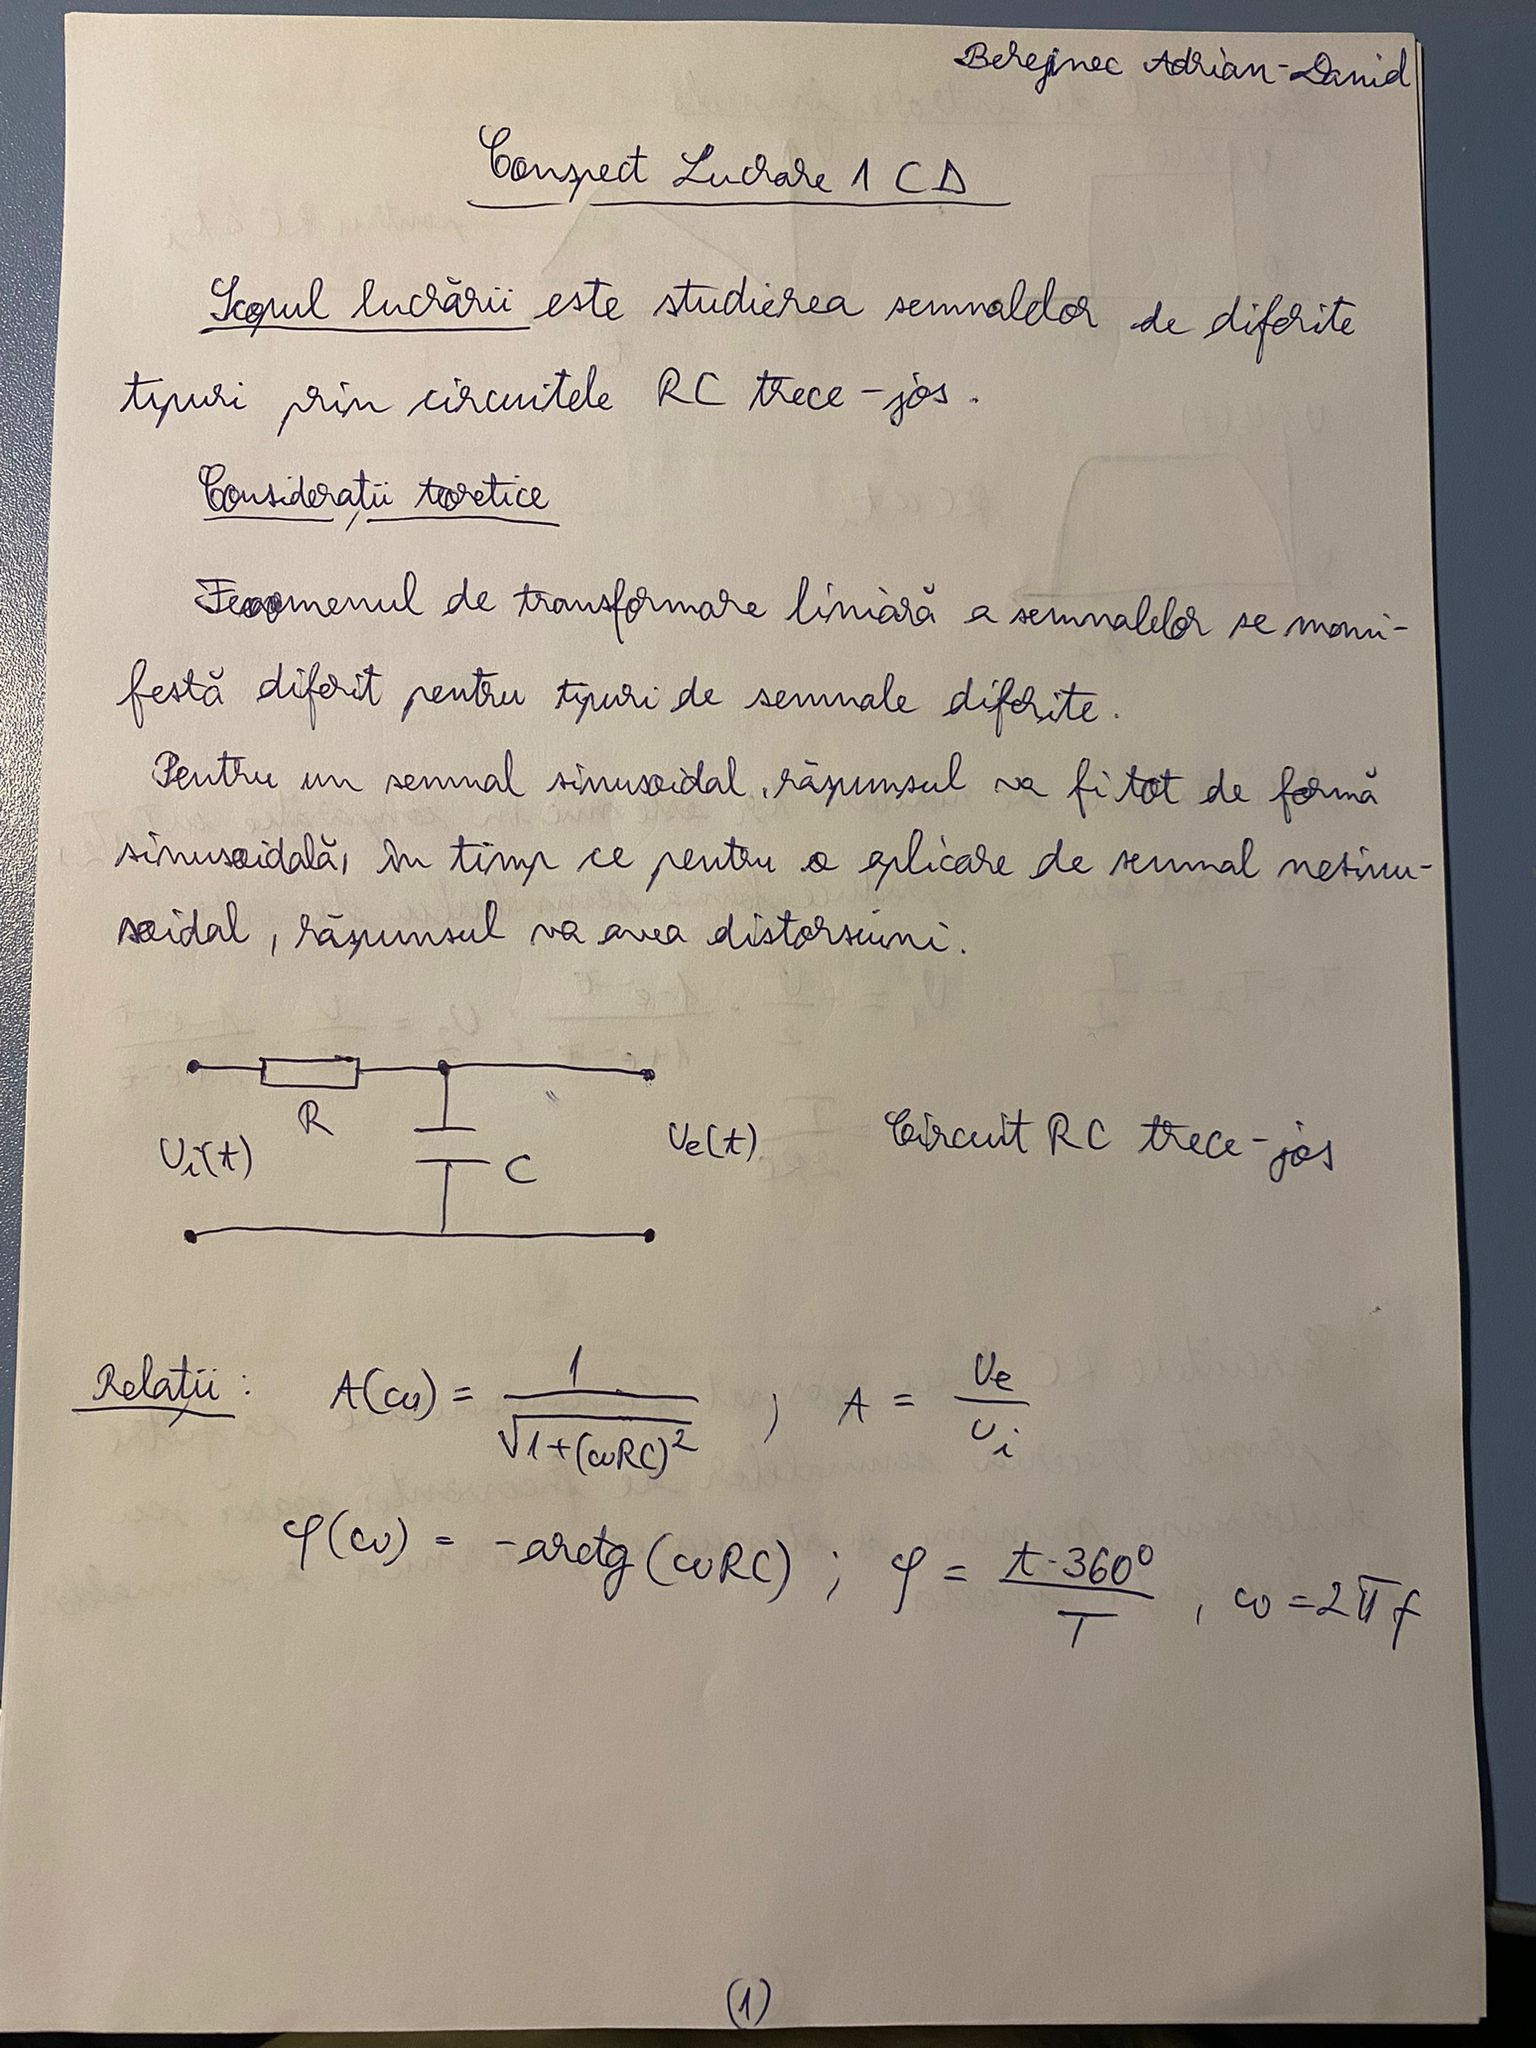 Berejnec Adrian-Daniel
Conspect Lucrare 1 CD
Scopul lucrării este studierea semnalelor de diferite
tipuri prin circuitele RC trece-jos.
Considerații teoretice
Fenomenul de transformare liniară a semnalelor se mani-
festă diferit pentru tipuri de semnale diferite.
Pentru un semnal sinusoidal, răspunsul va fi tot de formă
sinusoidală, în timp ce pentru o aplicare de semnal nesinu-
soidal, răspunsul va avea distorsiuni.
R
Ui(t)
C
Ue(t)
Circuit RC trece-jos
Relații: A(ω) = 1/√(1+(ωRC)²) ; A = Ue/Ui
φ(ω) = -arctg(ωRC) ; φ = t·360°/T , ω = 2πf
(1)